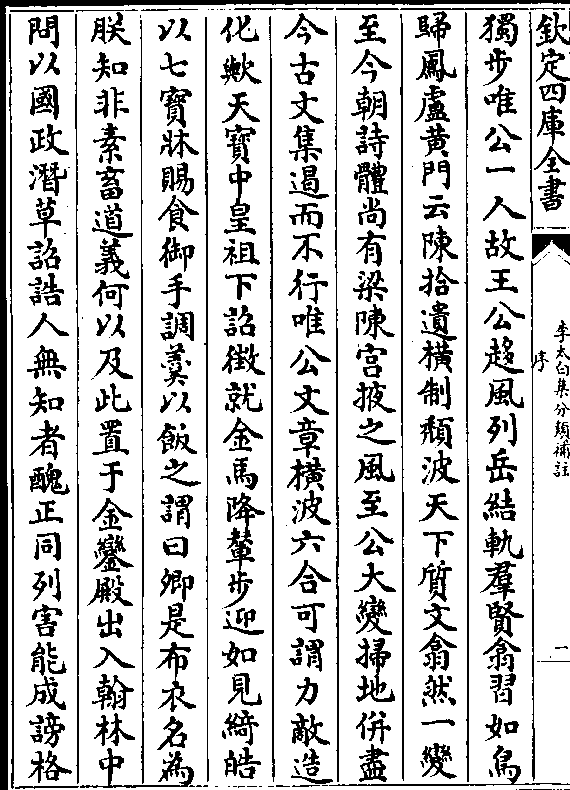 欽定四庫全書
李太白集分類補註
序
一
獨步唯公一人故王公趍風列岳結軌羣賢翕習如鳥
歸鳳盧黄門云陳拾遺横制頽波天下質文翕然一變
至今朝詩體尚有梁陳宫掖之風至公大變掃地併盡
今古文集遏而不行唯公文章横波六合可謂力敵造
化歟天寶中皇祖下詔徵就金馬降輦步迎如見綺皓
以七寶牀賜食御手調羹以飯之謂曰卿是布衣名為
朕知非素畜道義何以及此置于金鑾殿出入翰林中
問以國政潛草詔誥人無知者醜正同列害能成謗格